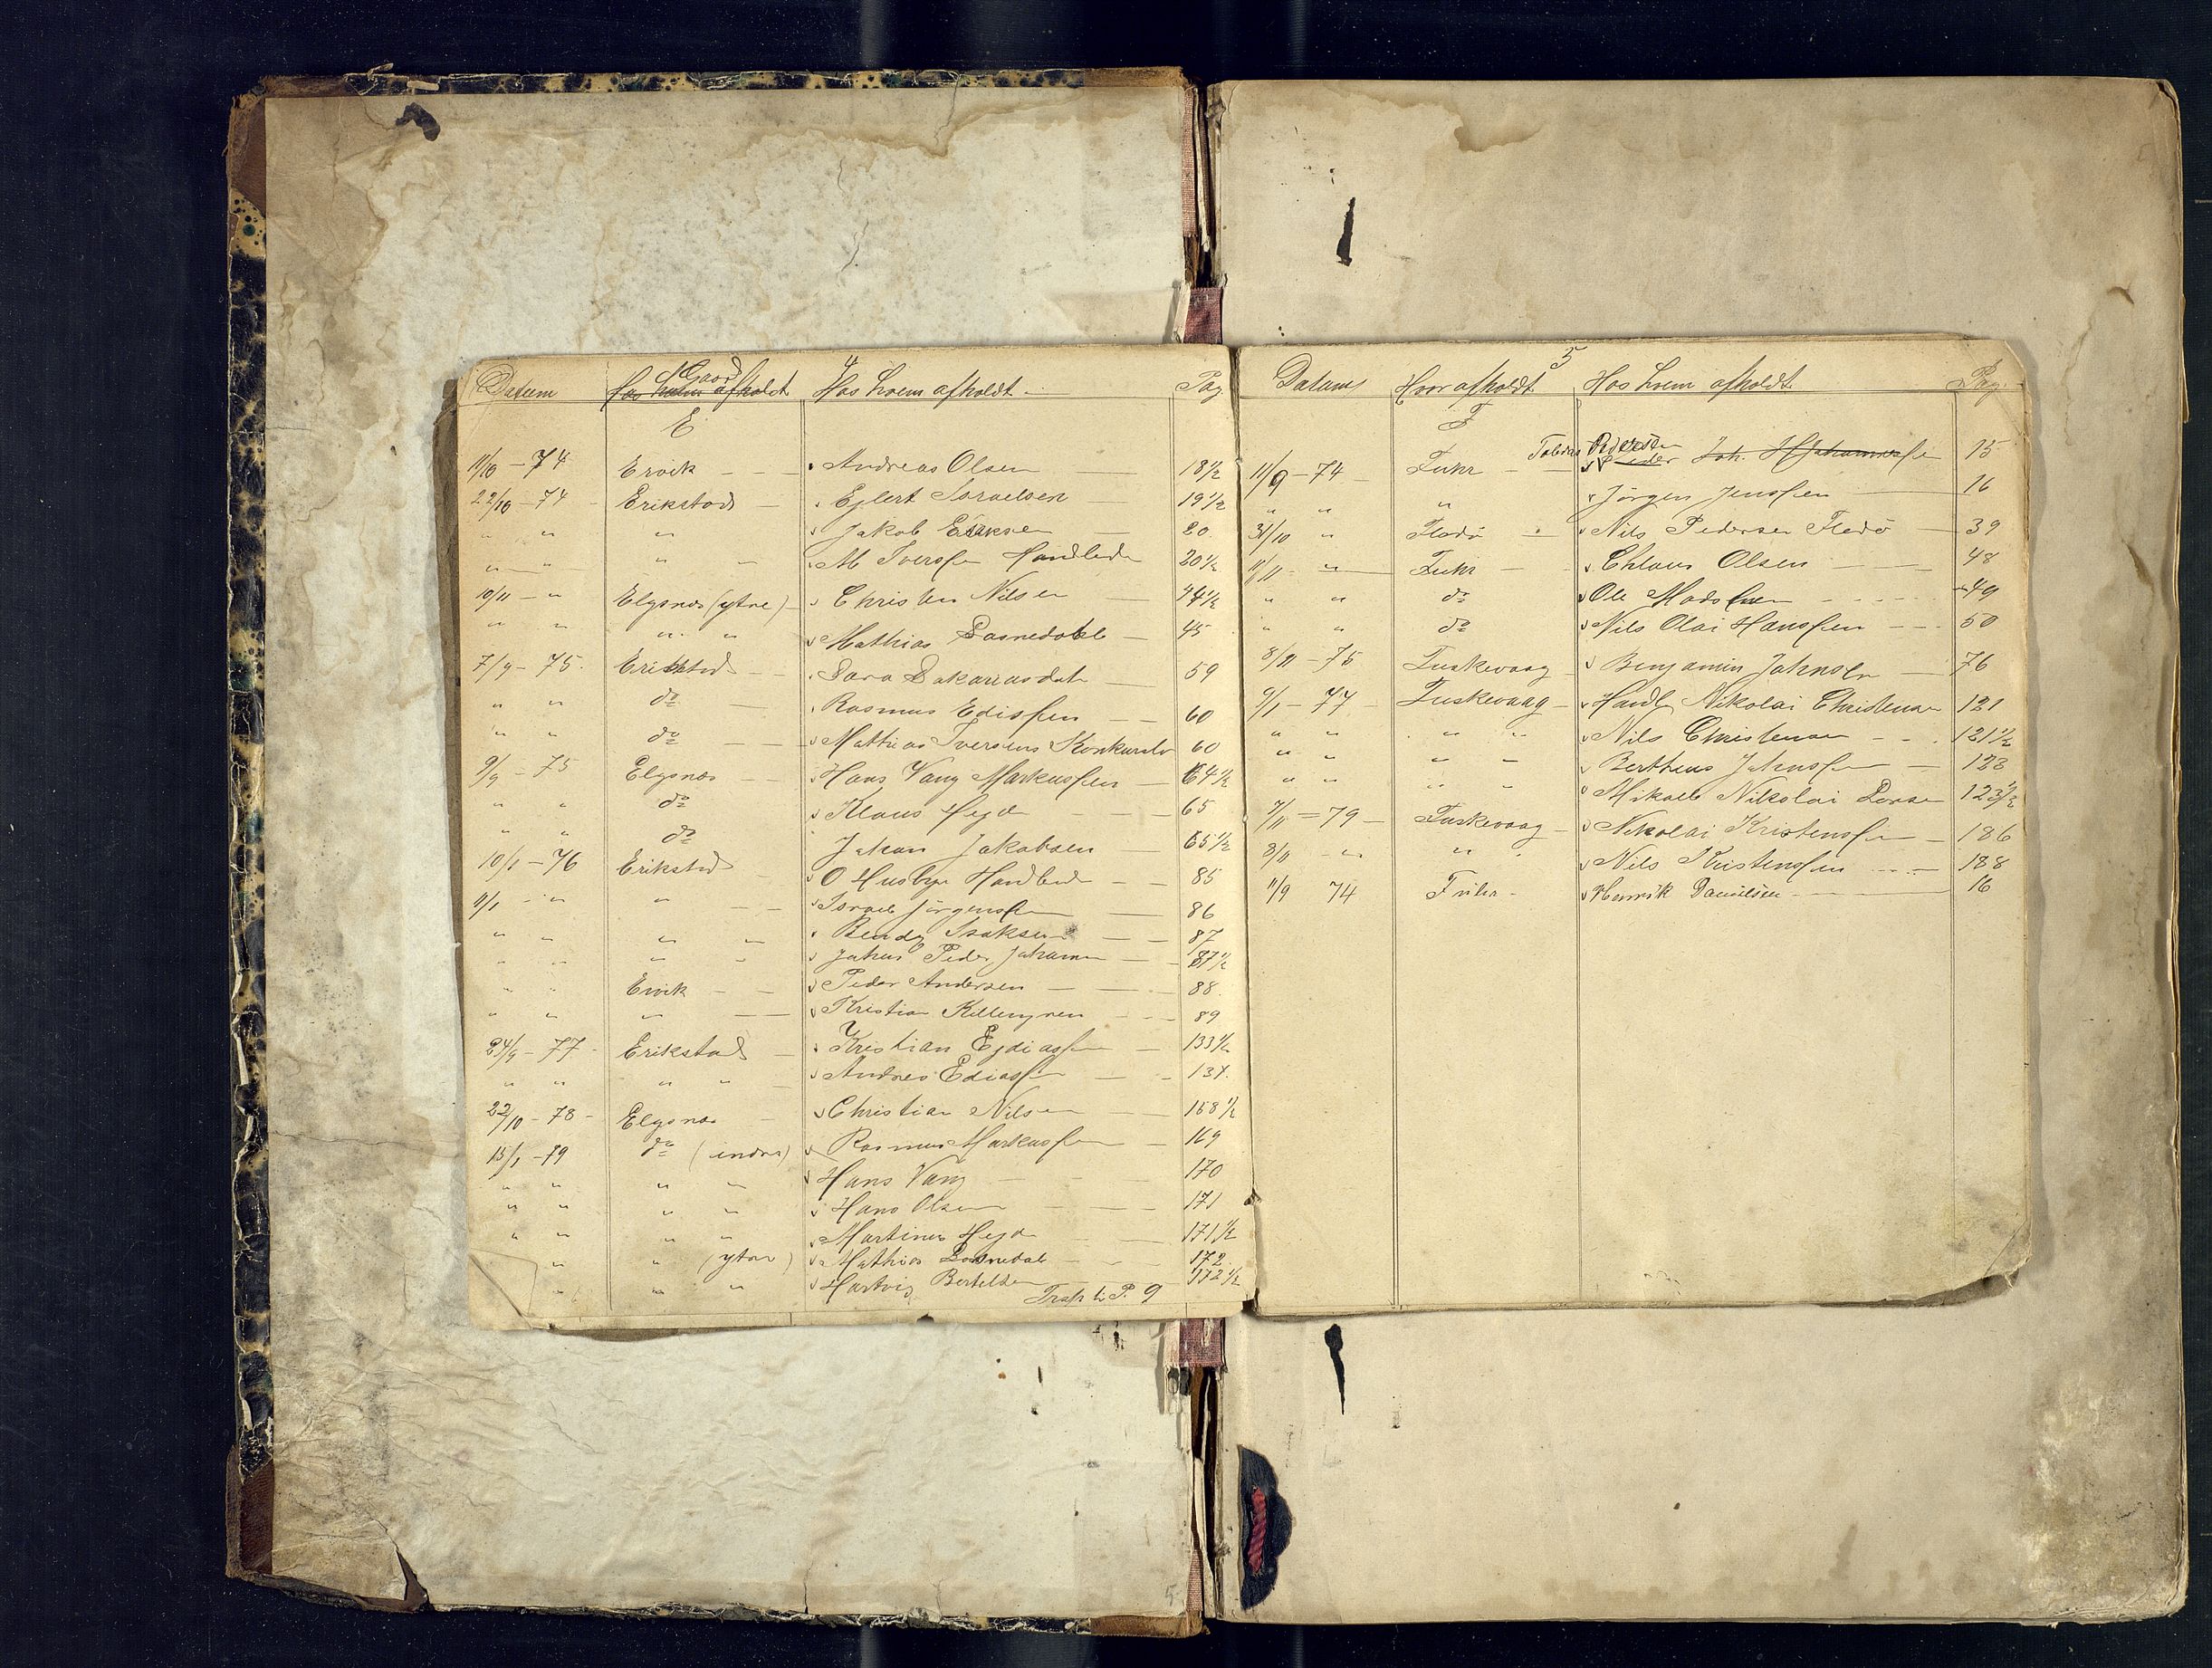 4
Datum Gaard Hos hvem afholdt Hos hvem afholdt Pag.
E
11/10 - 74 Ervik - - Andreas Olsen 18 1/2
22/10 - 74 Erikstad - Ejlert Israelsen 19 1/2
" " " Jakob Isaksen - 20
" " " " M Iverssen Handlende 20 1/2
10/11 - " Elgsnæs (ytre) - Christen Nilsen - 44 1/2
" " " " Mathias Dasnedahl - 45
7/9 - 75 Erikstad - - Sara Sakariasdatr - 59
" " do - Rasmus Edissen - - 60
" " do - - Mathias Iversens Konkursbo 60
9/9 - 75 Elgsnæs - Hans Vang Markussen - 64 1/2
" " do Klaus Hegd - - - 65
" " do Johan Jakobsen - 65 1/2
10/1 - 76 Erikstad - O Husbye Handlende - - 85
11/1 - " " - - Israel Jörgenssen - 86
" " " " Bendg Isaksen - - 87
" " " " Johan Peder Johansen - - 87 1/2
" " Ervik - - Peder Andersen - - 88
" " " - - Kristian Killengren - - 89
24/9 - 77 - Erikstad - Kristian Ejdiassen - 133 1/2
" " " " - Andreas Ediassen - - 137
22/10 - 78 - Elgsnæs - Christian Nilsen - 158 1/2
15/1 - 79 do (indre) Rasmus Markussen - 169
" " " " Hans Vang - - 170
" " " " Hans Olsen - - - 171
" " " " Martines Hegd - 171 1/2
" " (ytre) Mathias Dasnedal - - 172
" " " Hartvig Bertelsen - 172 1/2
Trsp. til P. 9
5
Datum Hvor afholdt Hos hvem afholdt Pag.
F
Tobias Pedersen
11/9 - 74 - Fuhr - Peder Joh. H Johannessen 15
" " " Jörgen Jenssen - 16
31/10 " Flodö - Nils Pedersen Flodö - 39
11/11 - " - Fuhr - Chlaus Olsen - - 48
" " do Ole Madssen - - - 49
" " do Nils Olai Hanssen - - - 50
8/11 - 75 Fuskevaag Benjamin Johnsen - 76
9/1 - 77 - Fuskevaag - Handl. Nikolai Christensen 121
" " " " Nils Christensen - - - 121 1/2
" " " " Bertheus Johnssen - 123
" " " " Mikael Nikolai Larsen 123 1/2
7/11 - 79 - Fuskevaag - Nikolai Kristenssen - 186
8/11 - " " Nils Kristenssen - - - 188
11/9 74 Fuhr - Henrik Danielsen - - 16
5